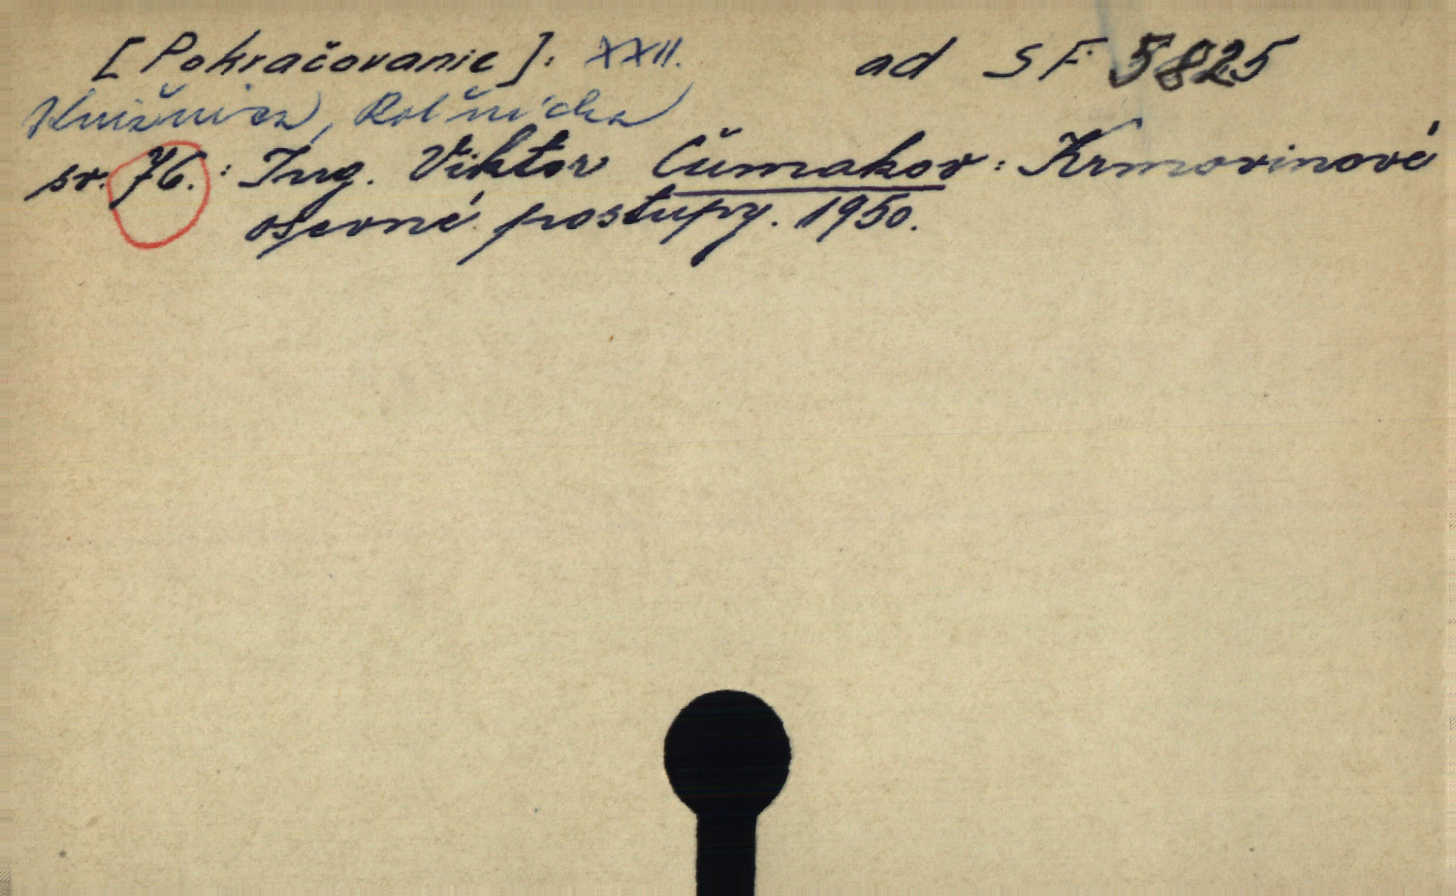 [Pokračovanie]: XXII. ad SF 5825
Knižnica, Roľnícka
sv. 76.: Ing. Viktor Čumakov: Krmovinové
osevné postupy. 1950.